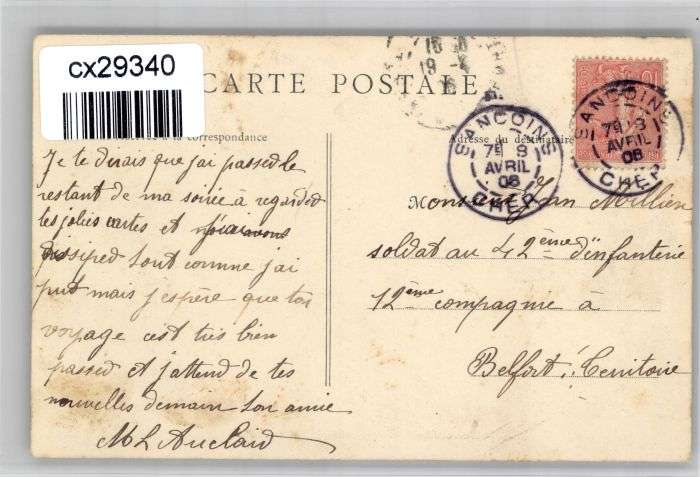 cx29340
CARTE POSTALE
la correspondance
Adresse du destinataire
SANCOINS
7E 8
AVRIL
06
CHER
SANCOINS
7E 8
AVRIL
06
CHER
Je te dirais que j'ai passed le
restant de ma soirée à regarded
tes jolies cartes et
sont comme j'ai
put mais j'espère que ton
voyage c'est très bien
passed et j'attend de tes
nouvelles demain ton amie
M L Auclair
Monsieur Jean Millien
soldat au 42ème d'infanterie
12ème compagnie à
Belfort, Territoire